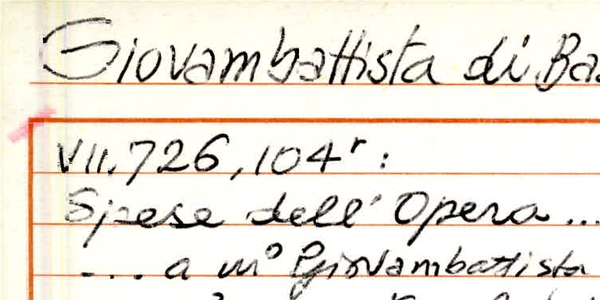 Giovambattista di Ba
VII, 726, 104r:
Spese dell' Opera ...
... a mo Giovambattista